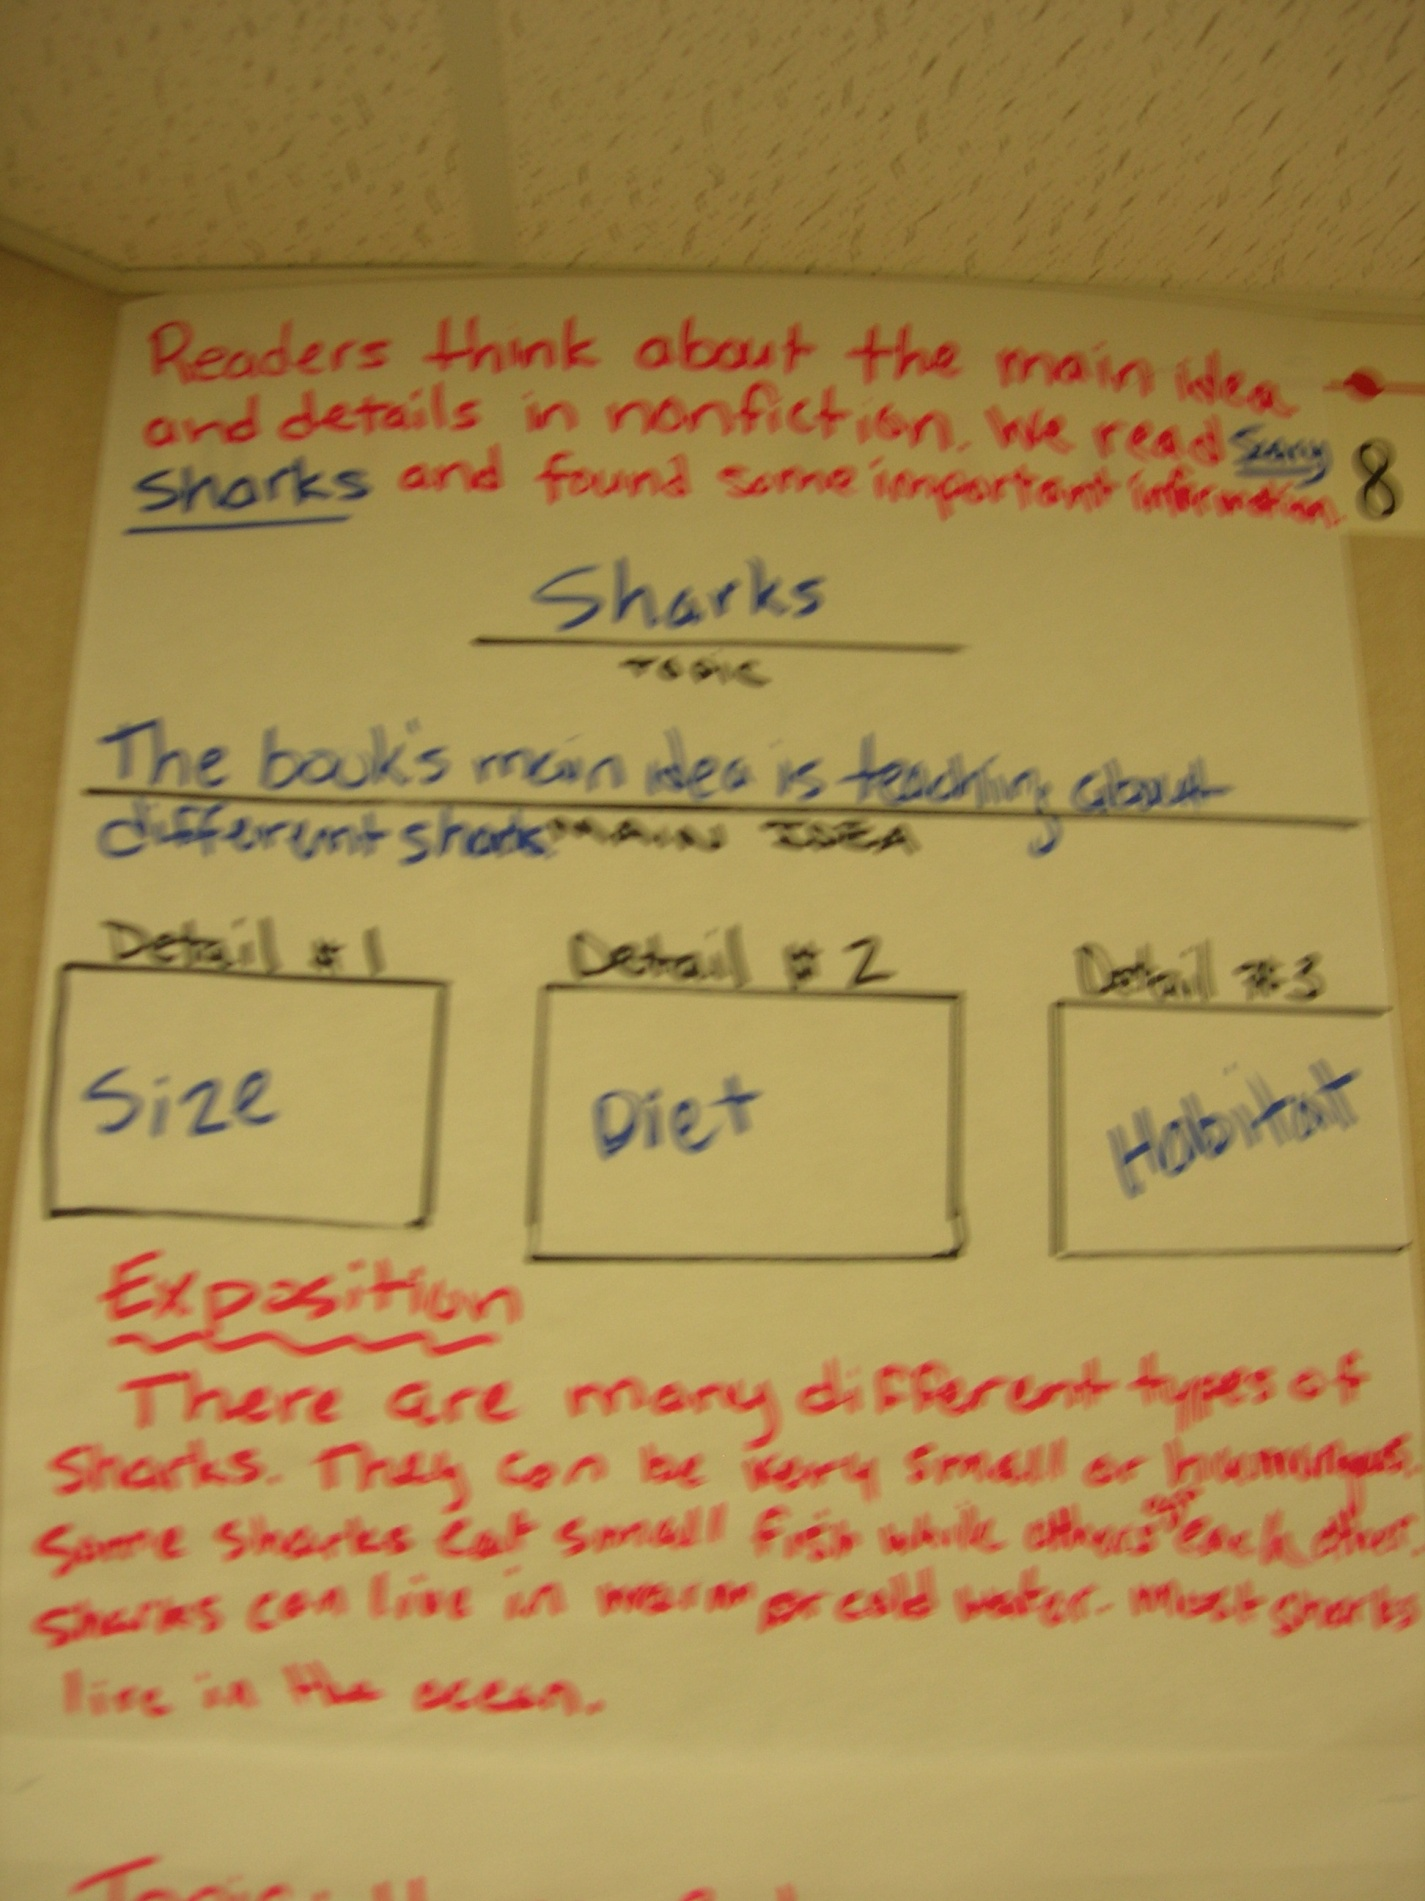 Readers think about the main idea
and details in nonfiction. We read Scary
Sharks and found some important information.
8
Sharks
TOPIC
The book's main idea is teaching about
different sharks.
MAIN IDEA
Detail #1
Detail #2
Detail #3
Size
Diet
Habitat
Exposition
There are many different types of
Sharks. They can be very small or humongus.
Some sharks eat small fish while others eat each other.
Sharks can live in warm or cold water. Most sharks
live in the ocean.